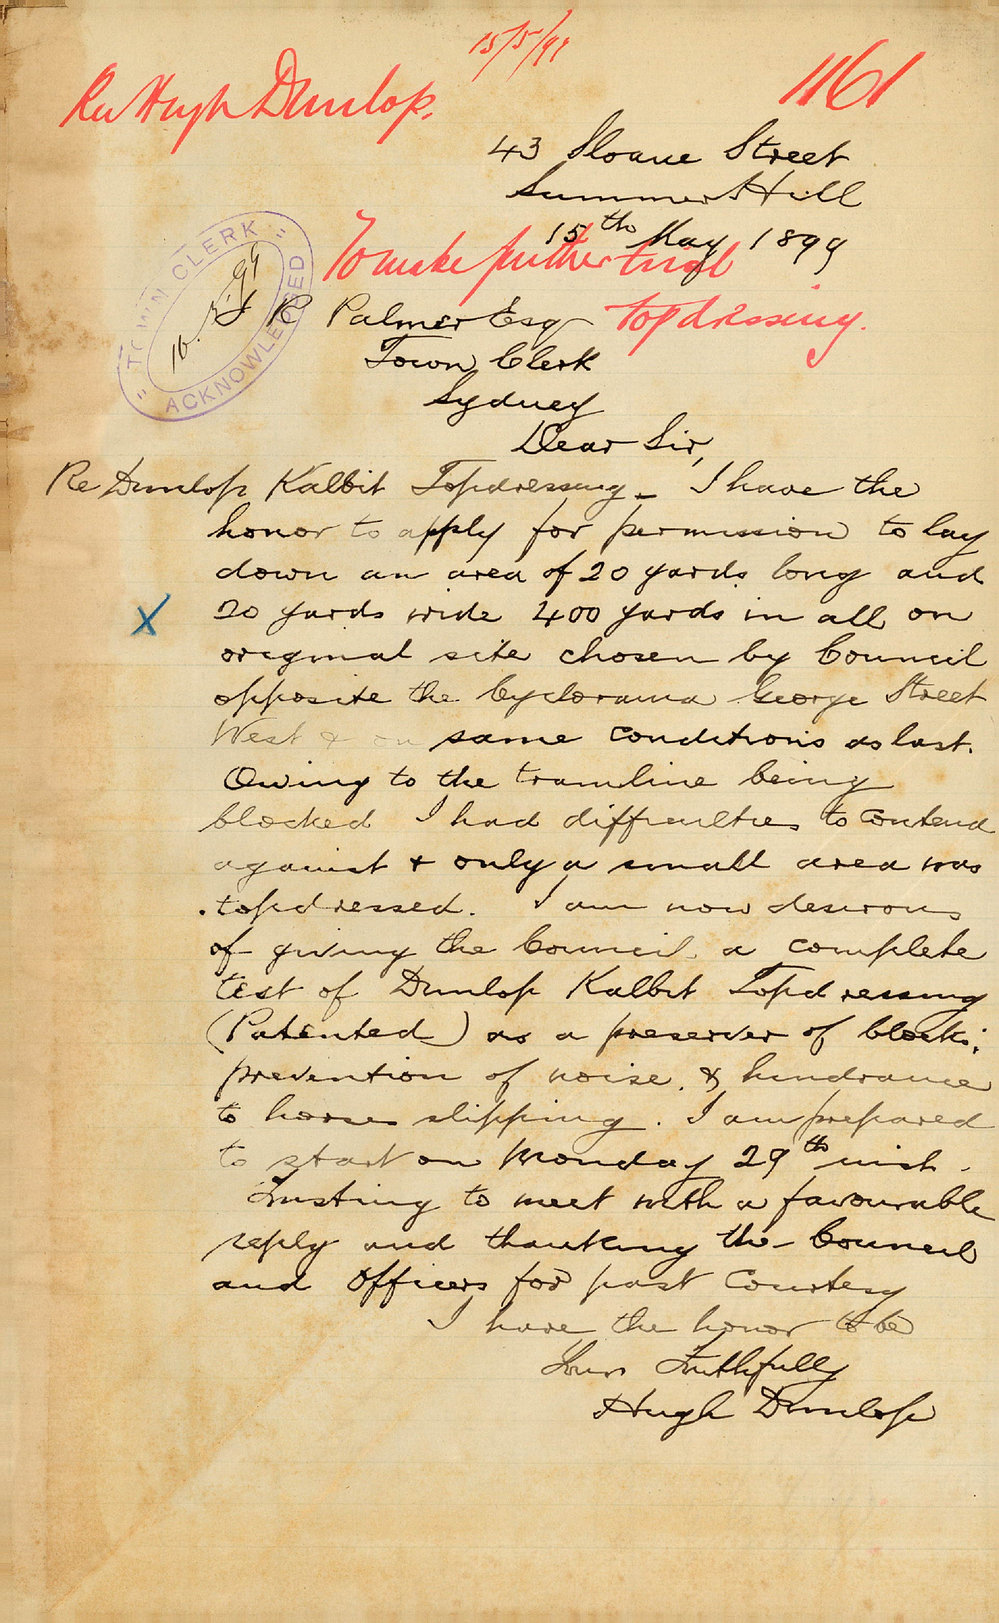 15/5/99
Rev Hugh Dunlop.
1161
43 Sloane Street
Summer Hill
15th May 1899
To make further trial
topdressing.
"TOWN CLERK"
16.5.99
ACKNOWLEDGED
R Palmer Esq
Town Clerk
Sydney
Dear Sir,
Re Dunlop Kalbit Topdressing - I have the
honor to apply for permission to lay
down an area of 20 yards long and
X
20 yards wide 400 yards in all on
original site chosen by Council
opposite the Cyclorama George Street
West & on same conditions as last.
Owing to the tramline being
blocked I had difficulties to contend
against & only a small area was
topdressed. I am now desirous
of giving the Council a complete
test of Dunlop Kalbit Topdressing
(Patented) as a preserver of blocks;
prevention of noise, & hindrance
to horses slipping. I am prepared
to start on Monday 29th inst.
Trusting to meet with a favourable
reply and thanking the Council
and Officers for past Courtesy
I have the honor to be
Yours Faithfully
Hugh Dunlop